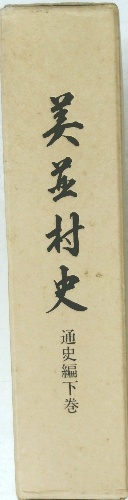 美並村史
通史編下巻